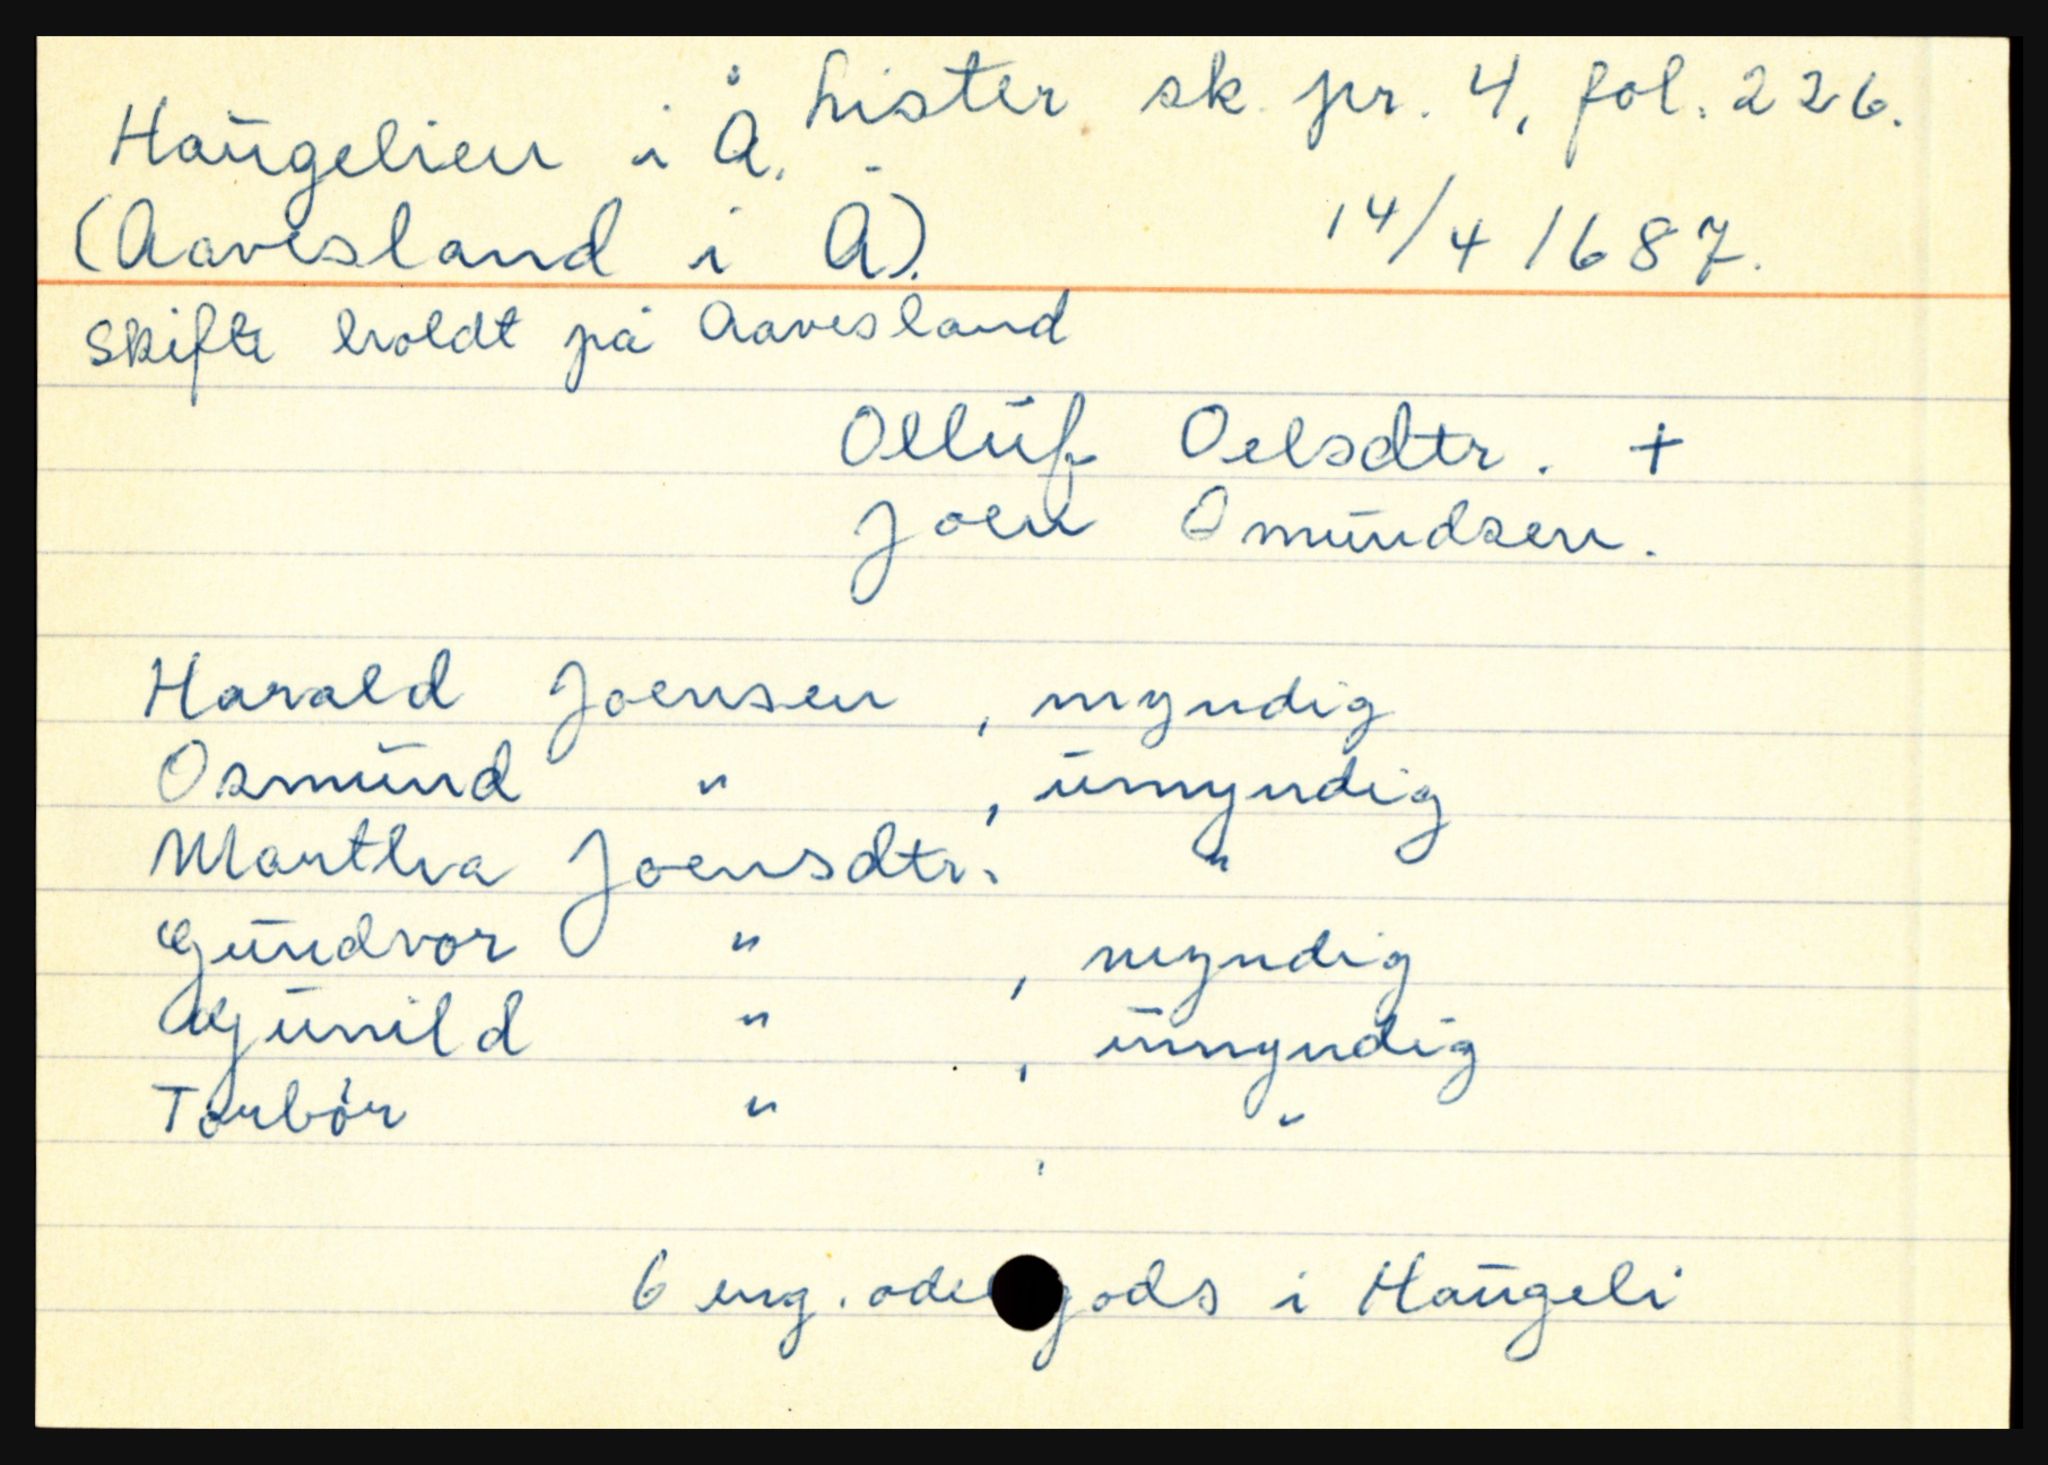 Haugelien i Å. Lister sk. pr. 4, fol. 226.
(Aavesland i Å). 14/4 1687.
Skifte holdt på Aavesland
Olluf Oelsdtr. +
Joen Omundsen.
Harald Joensen, myndig
Osmund " , umyndig
Martha Joensdtr. "
Gundvor " , myndig
Gunild " , umyndig
Torbór " "
6 eng. odelgods i Haugeli